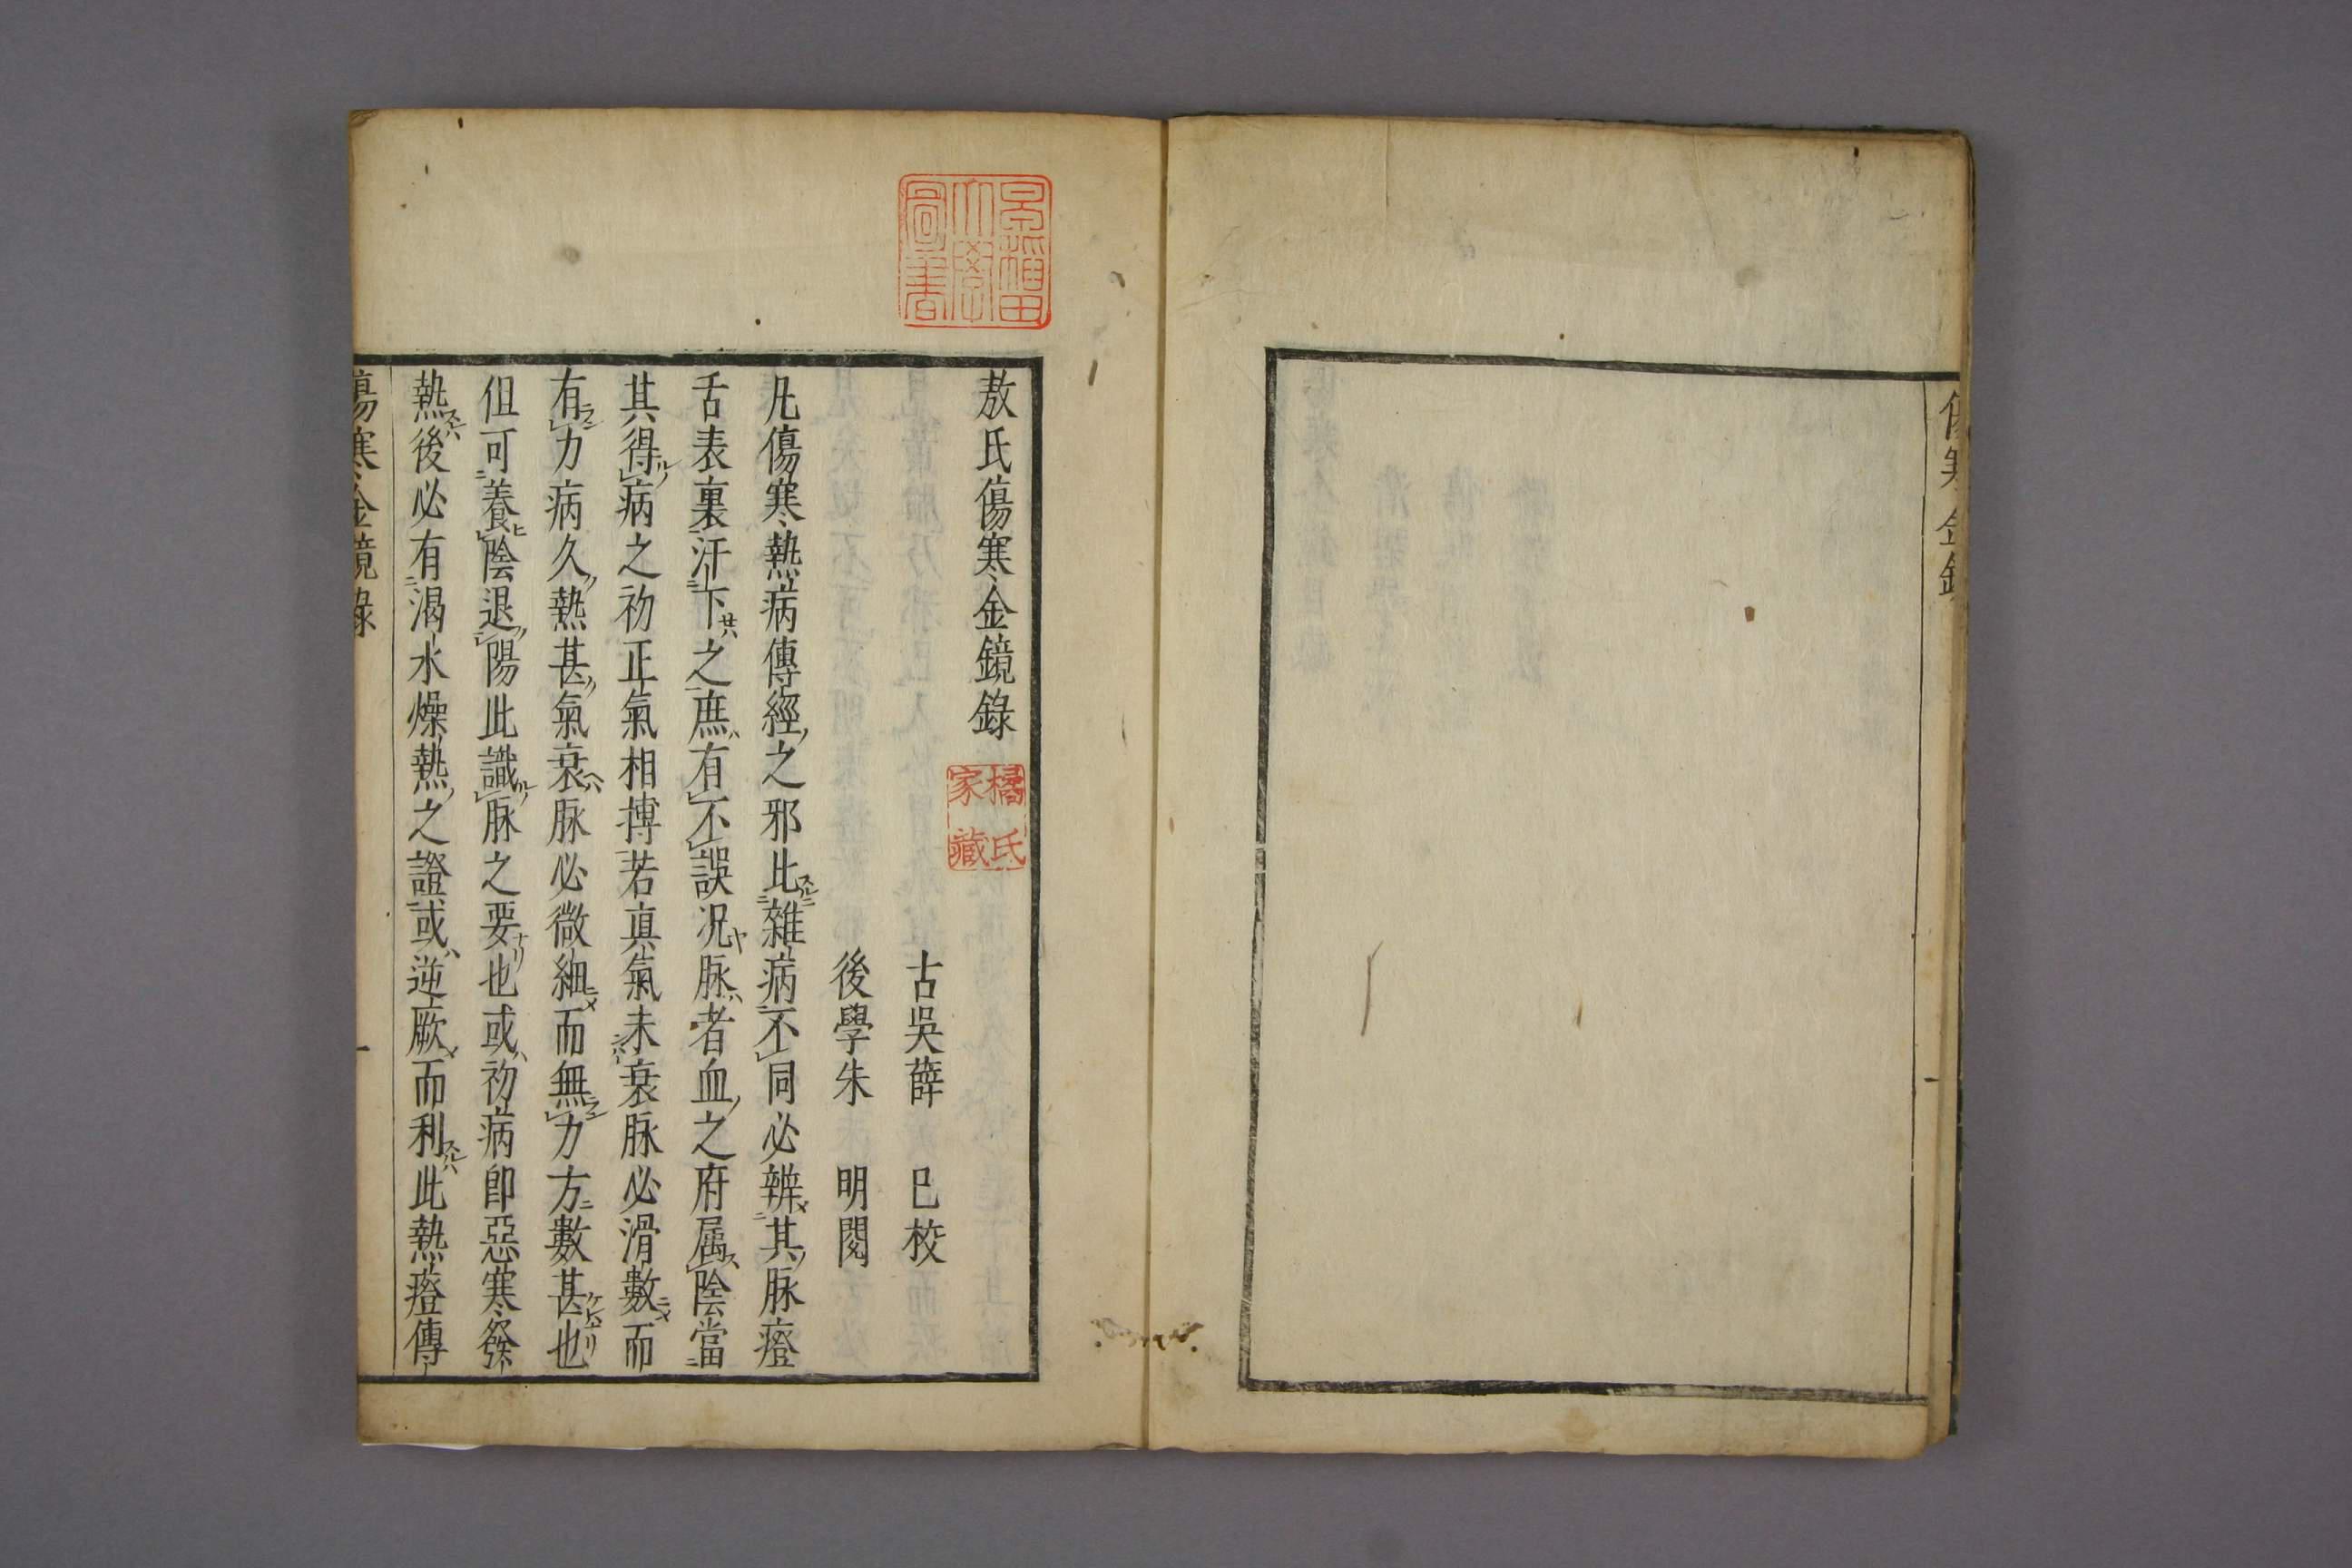 傷寒金鏡
早稲田
大學
圖書
敖氏傷寒金鏡錄
橘氏
家藏
古吳薛　巳校
後學朱　明閱
凡傷寒熱病傳經之邪比雜病不同必辨其脉證
舌表裏汗下之庶有不誤况脉者血之府属陰當
其得病之初正氣相搏若眞氣未衰脉必滑數而
有力病久熱甚氣衰脉必微細而無力方數甚也
但可養陰退陽此識脉之要也或初病卽惡寒發
熱後必有渴水燥熱之證或逆厥而利此熱證傳
傷寒金鏡錄
一